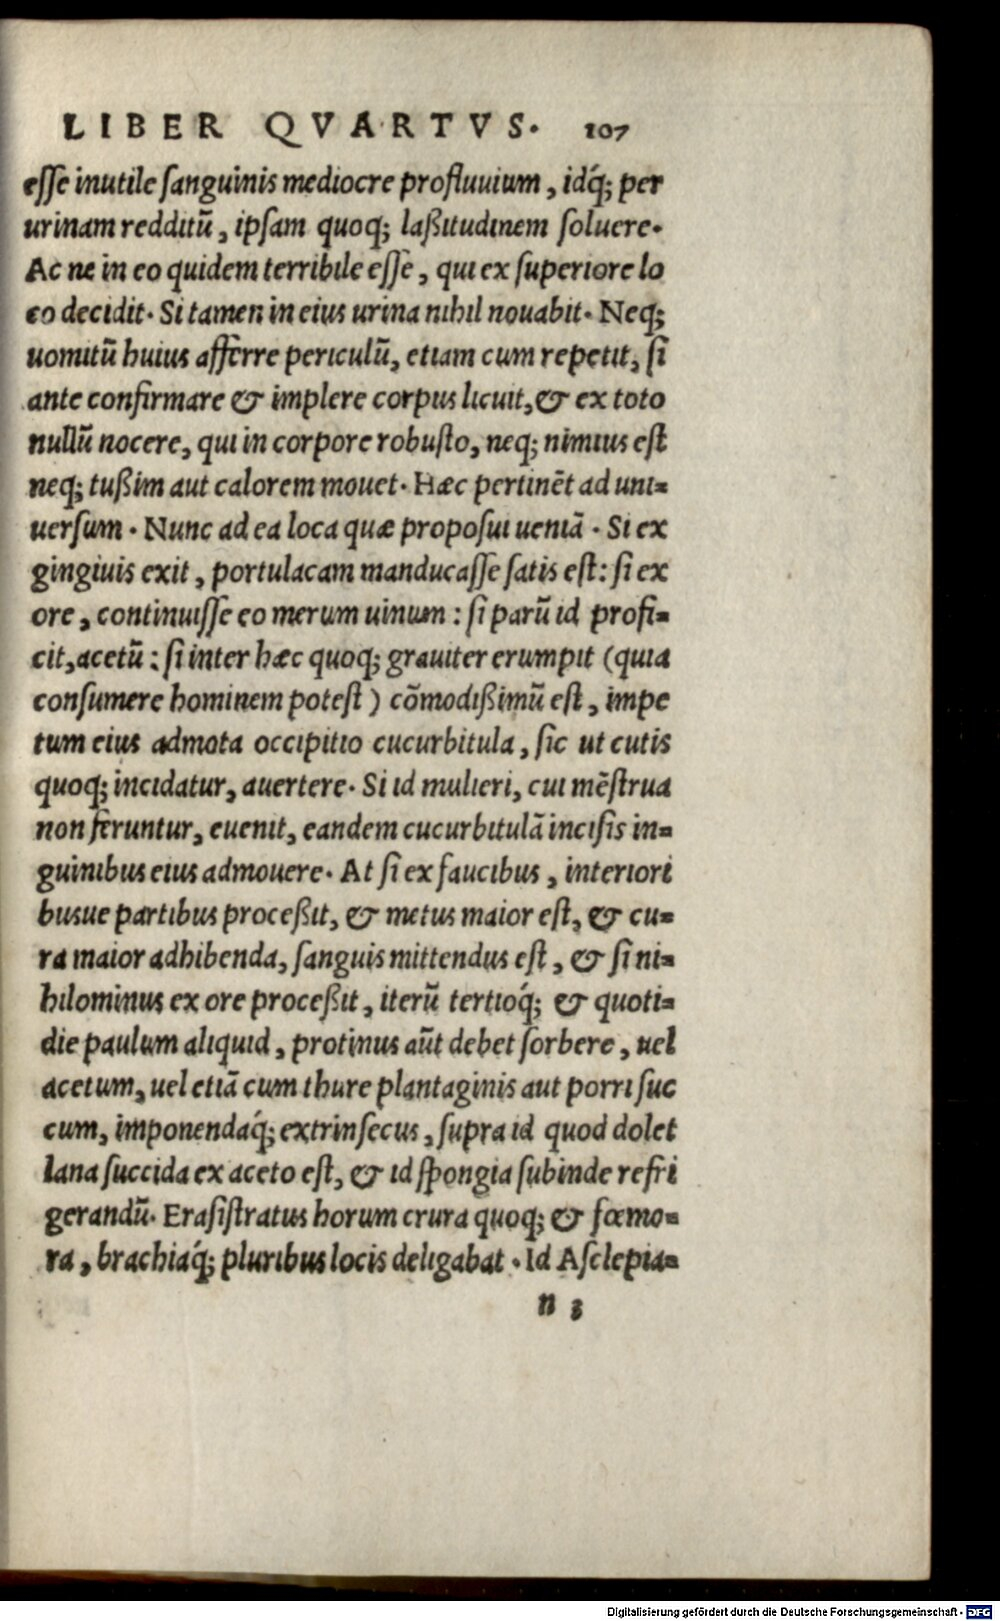 LIBER QVARTVS. 107
esse inutile sanguinis mediocre profluuium, idq́; per
urinam redditū, ipsam quoq; laßitudinem soluere.
Ac ne in eo quidem terribile esse, qui ex superiore lo
co decidit. Si tamen in eius urina nihil nouabit. Neq;
uomitū huius afferre periculū, etiam cum repetit, si
ante confirmare & implere corpus licuit, & ex toto
nullū nocere, qui in corpore robusto, neq; nimius est
neq; tußim aut calorem mouet. Hæc pertinēt ad uni-
uersum. Nunc ad ea loca quæ proposui ueniā. Si ex
gingiuis exit, portulacam manducasse satis est: si ex
ore, continuisse eo merum uinum: si parū id profi-
cit, acetū: si inter hæc quoq; grauiter erumpit (quia
consumere hominem potest) cōmodißimū est, impe
tum eius admota occipitio cucurbitula, sic ut cutis
quoq; incidatur, auertere. Si id mulieri, cui mēstrua
non feruntur, euenit, eandem cucurbitulā incisis in-
guinibus eius admouere. At si ex faucibus, interiori
busue partibus proceßit, & metus maior est, & cu-
ra maior adhibenda, sanguis mittendus est, & si ni-
hilominus ex ore proceßit, iterū tertioq́; & quoti-
die paulum aliquid, protinus aūt debet sorbere, uel
acetum, uel etiā cum thure plantaginis aut porri suc
cum, imponendaq́; extrinsecus, supra id quod dolet
lana succida ex aceto est, & id spongia subinde refri
gerandū. Erasistratus horum crura quoq; & fœmo-
ra, brachiaq́; pluribus locis deligabat. Id Asclepia-
n 3
Digitalisierung gefördert durch die Deutsche Forschungsgemeinschaft - DFG